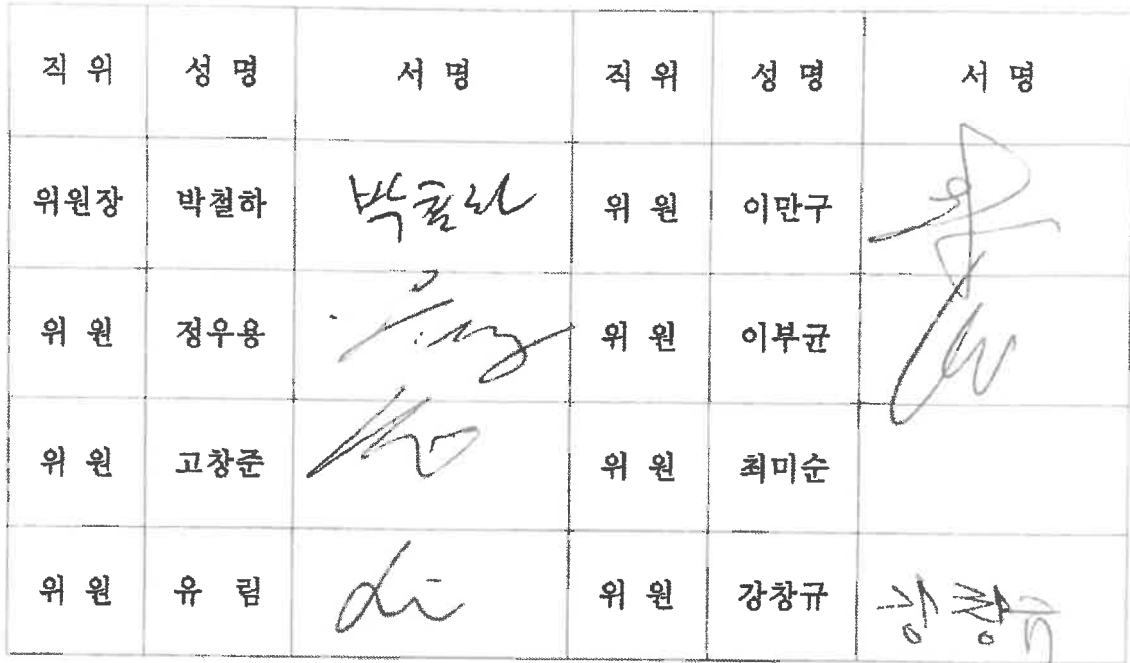 직 위 성 명 서 명 직 위 성 명 서 명
위원장 박철하 박철하 위 원 이만구
위 원 정우용 위 원 이부균
위 원 고창준 위 원 최미순
위 원 유 림 위 원 강창규 강창규